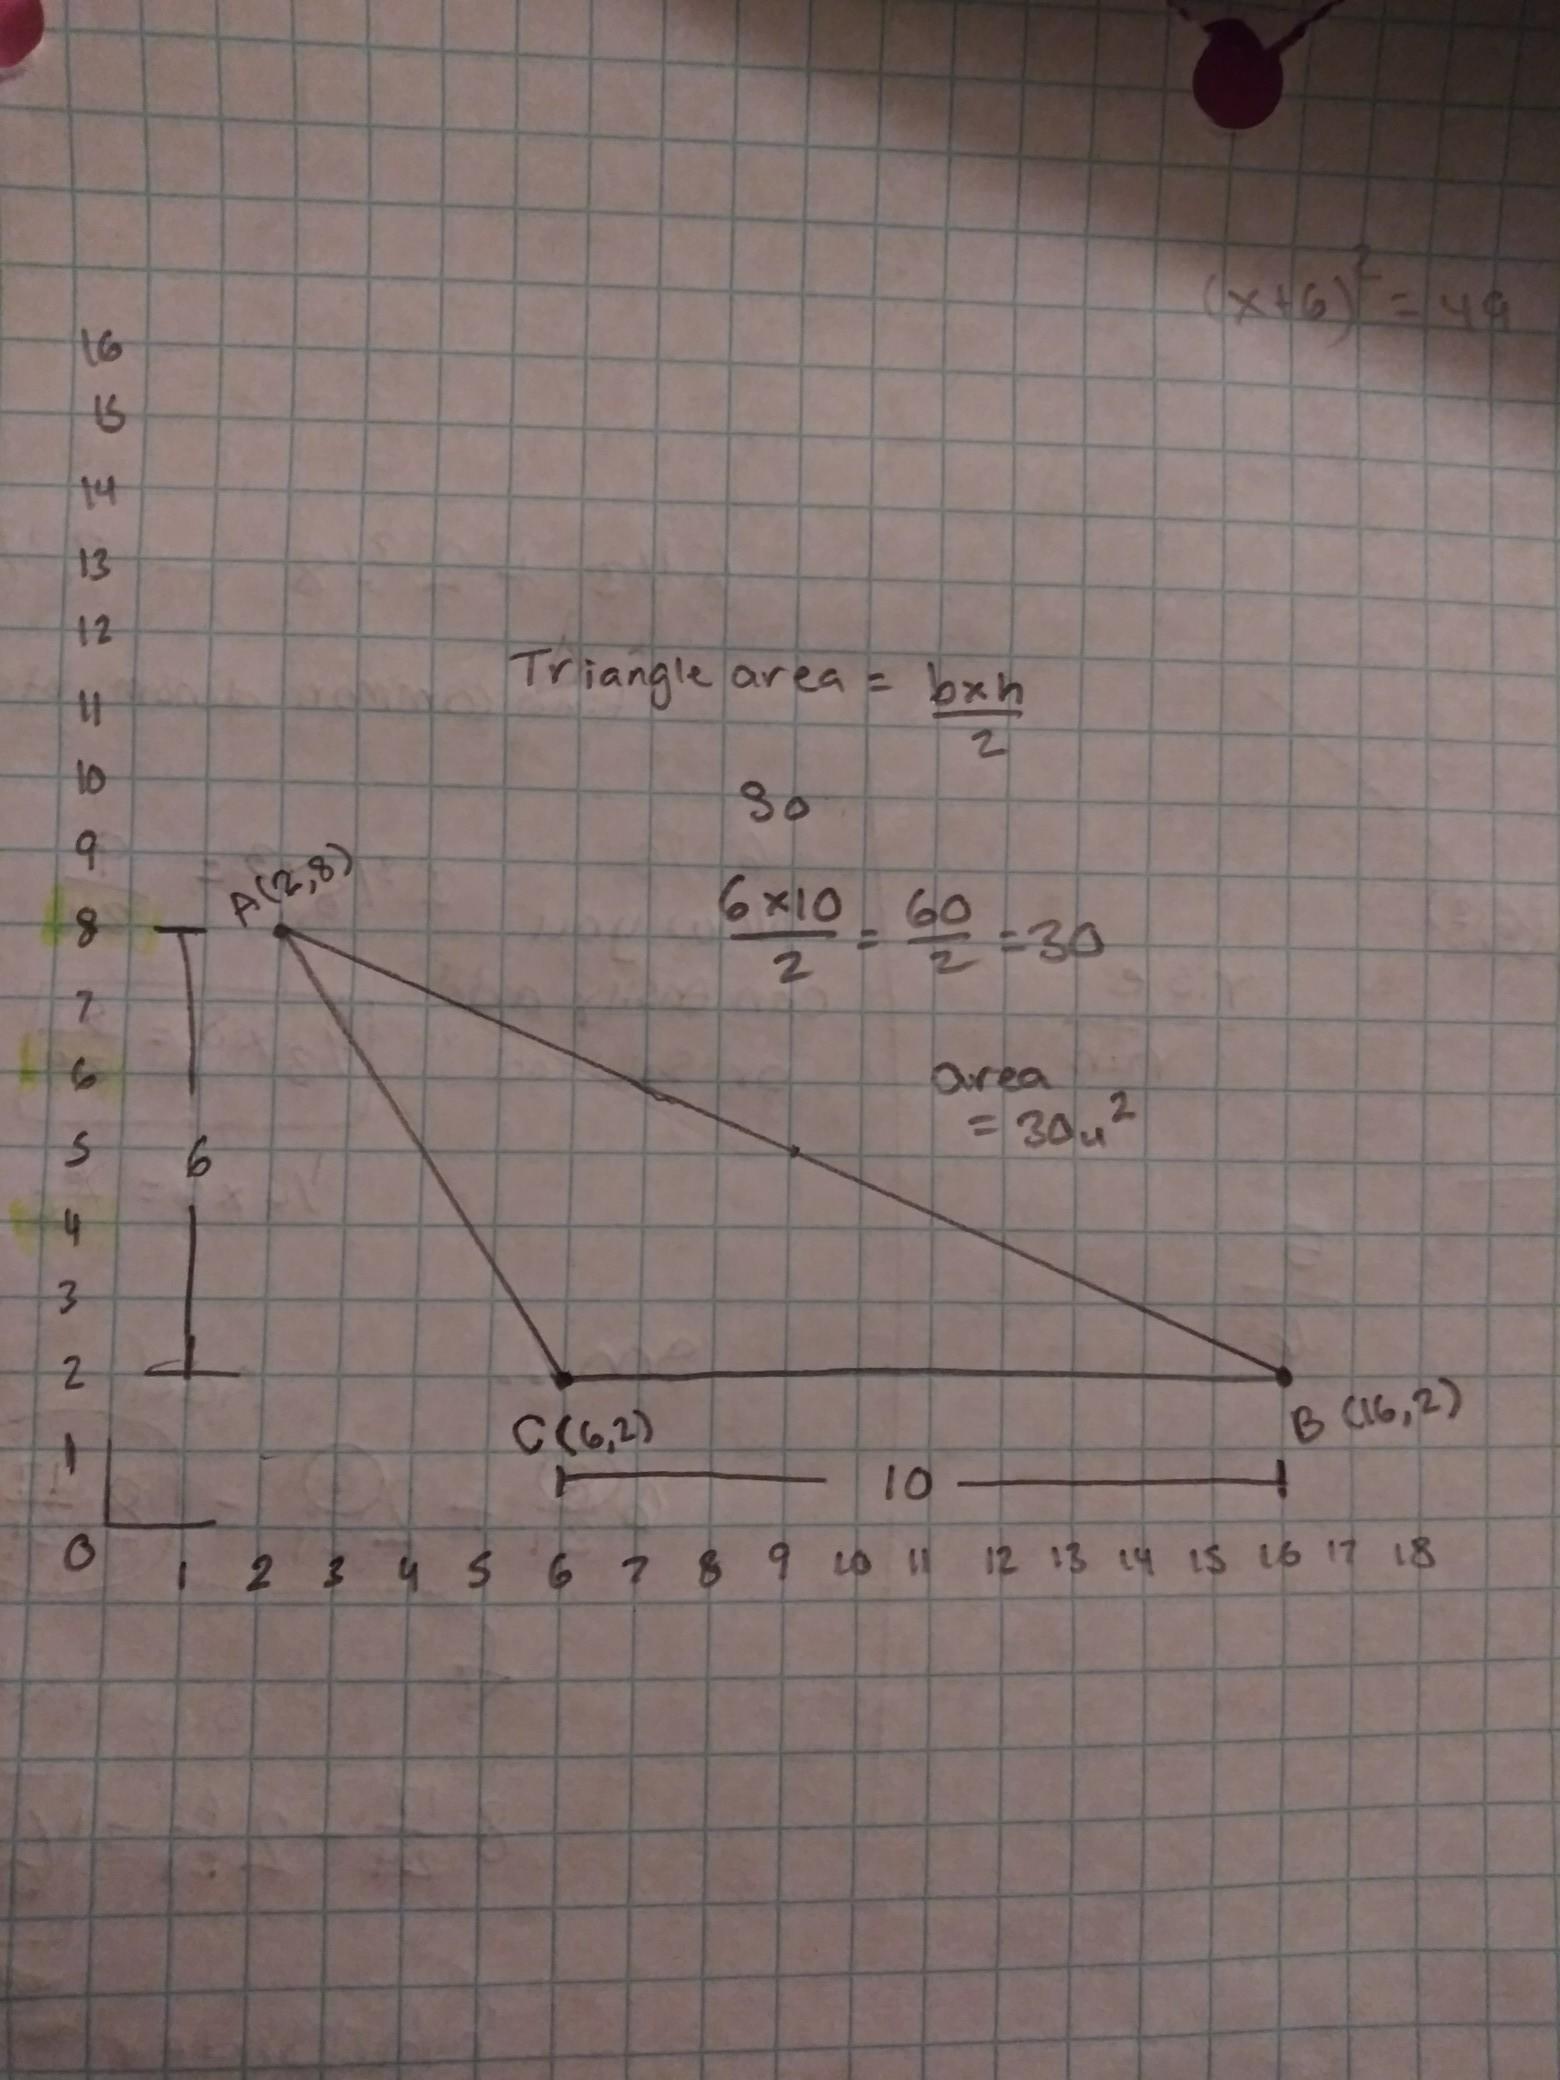 (x+6)² = 49
16
15
14
13
12
11
10
9
8
7
6
5
4
3
2
1
0
Triangle area = bxh
2
So
6x10 = 60 = 30
2 2
area
= 30u²
A(2,8)
6
C(6,2)
B (16,2)
10
1 2 3 4 5 6 7 8 9 10 11 12 13 14 15 16 17 18